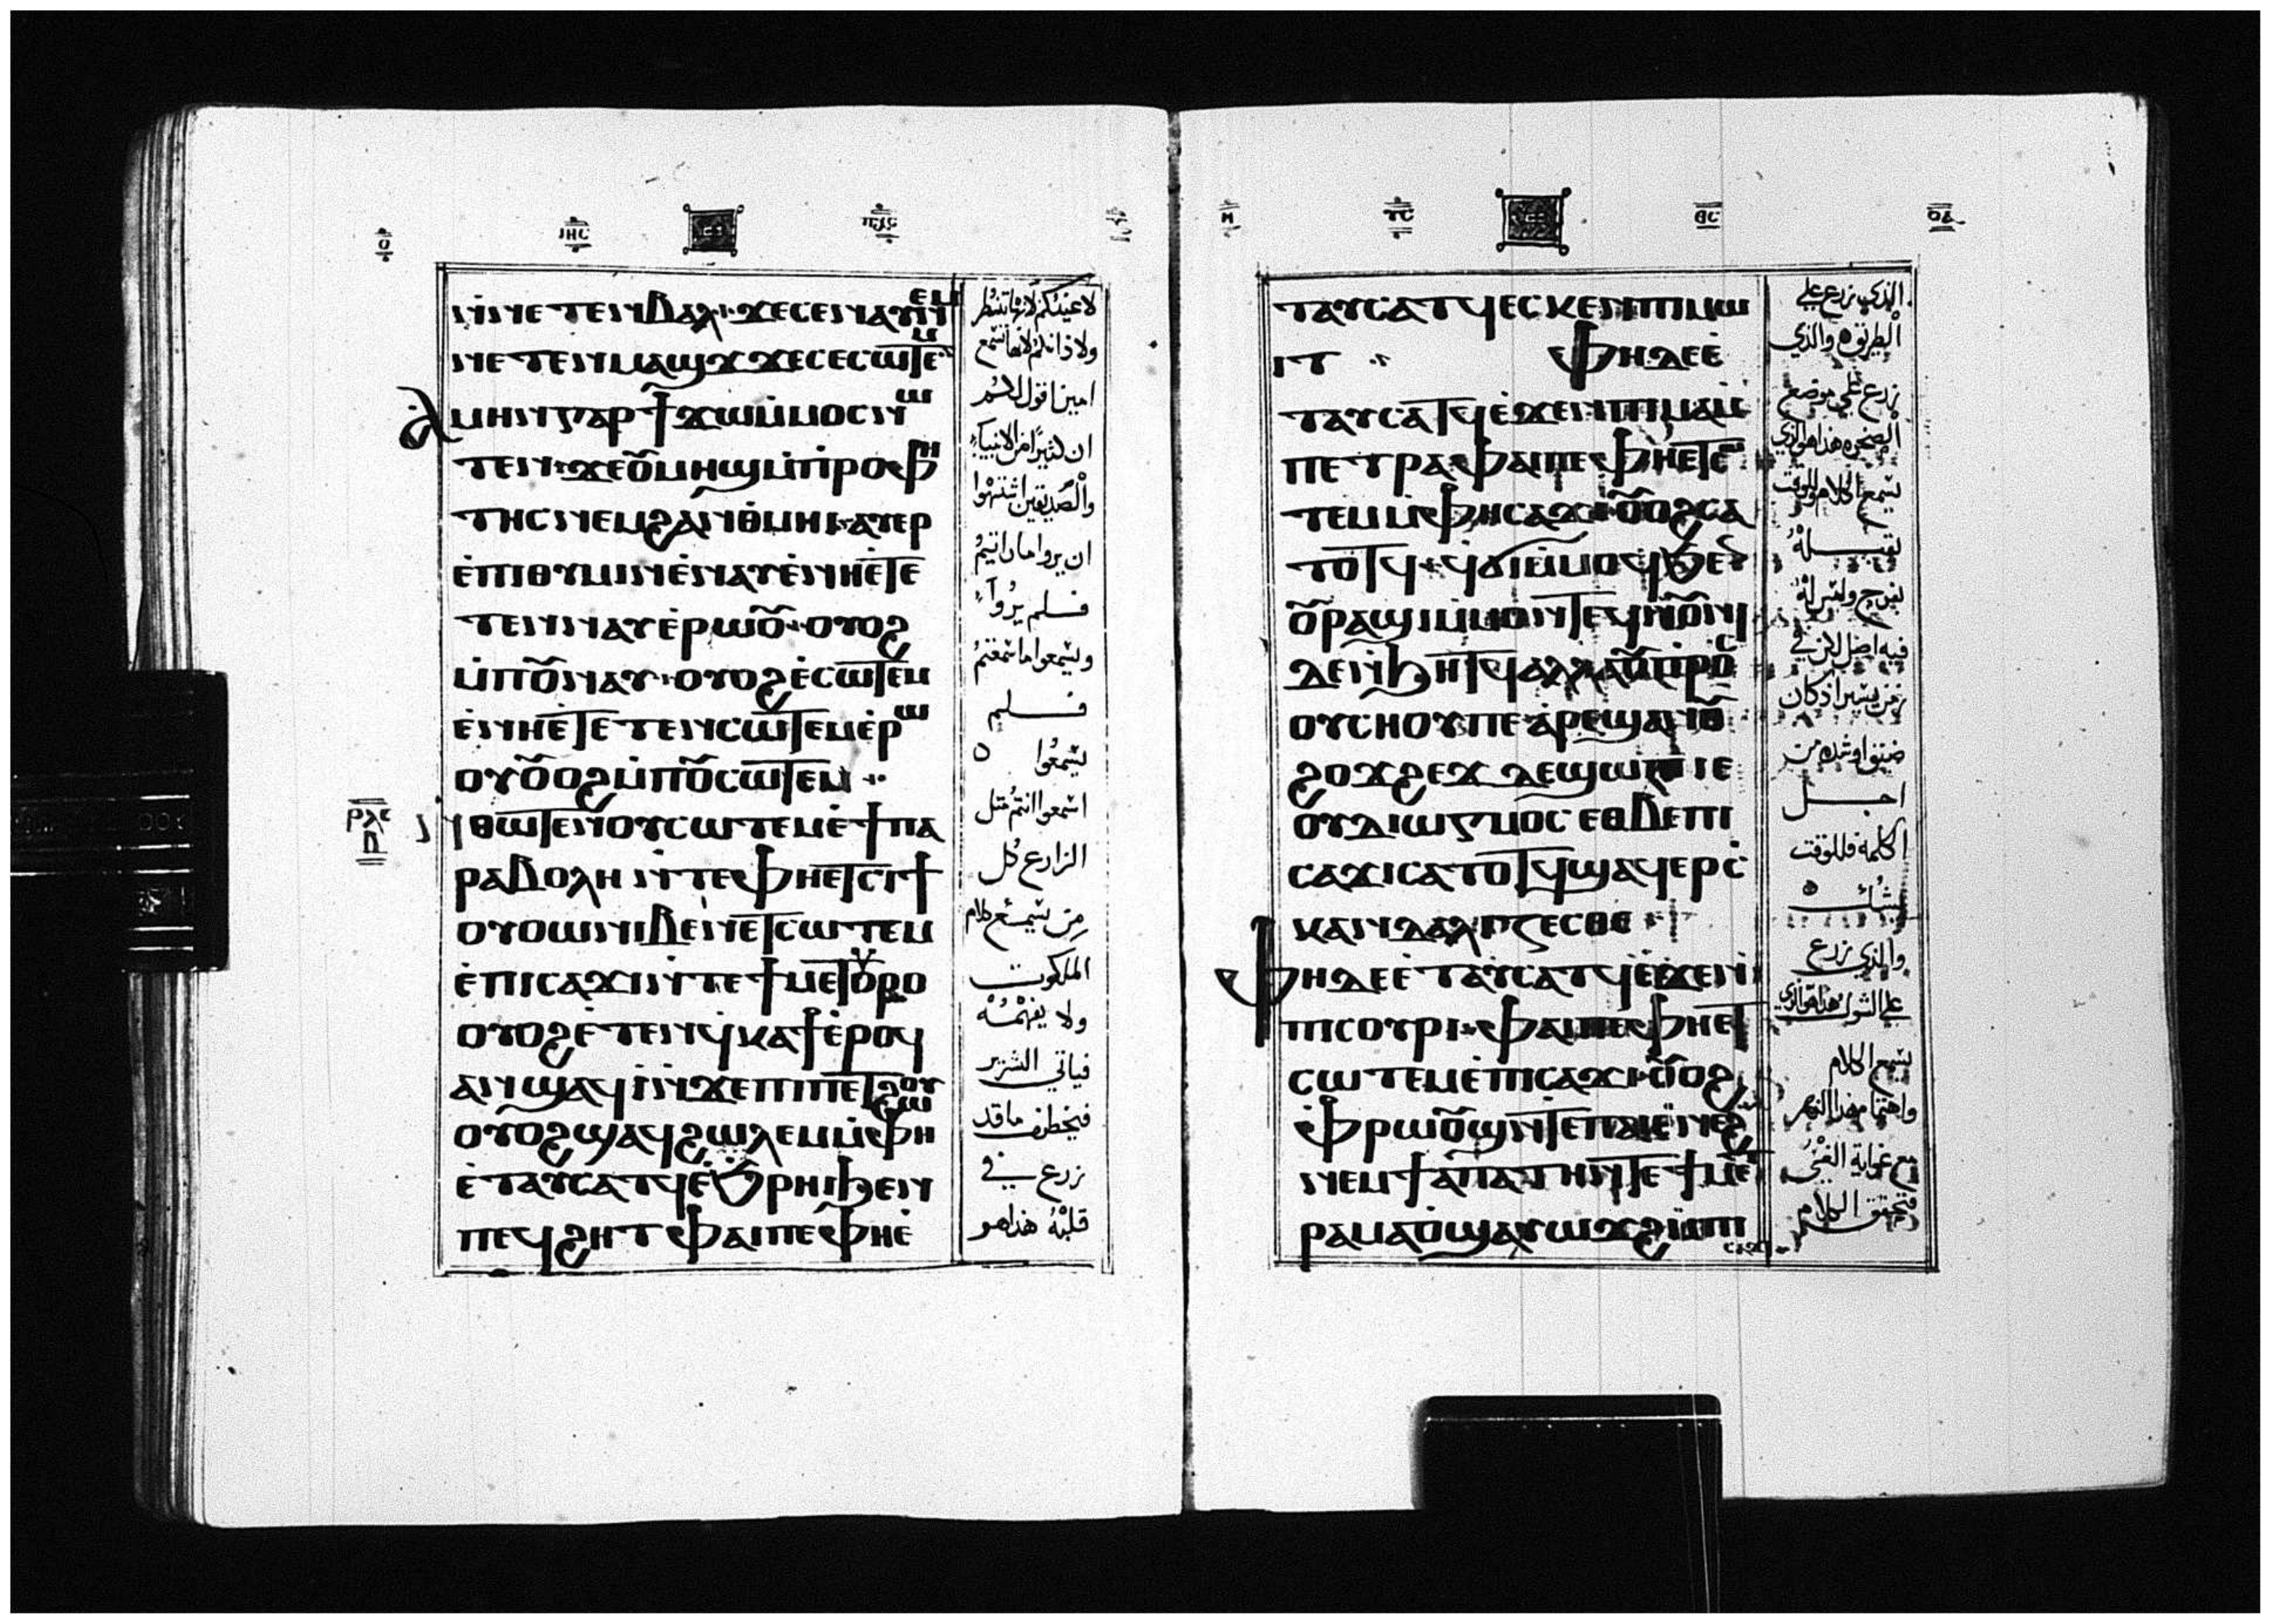 ⲟ ⲓⲏⲥ ⲡⲭⲥ
ⲛⲛⲉⲧⲉⲛⲃⲁⲗ ϫⲉⲥⲉⲛⲁⲩ
ⲛⲉⲧⲉⲛⲙⲁϣϫ ϫⲉⲥⲉⲥⲱⲧⲉⲙ
ⲁⲙⲏⲛ ⲅⲁⲣ ϯϫⲱⲙⲙⲟⲥⲛⲱ
ⲧⲉⲛ ϫⲉⲟⲩⲙⲏϣⲙⲡⲣⲟⲫⲏ
ⲧⲏⲥⲛⲉⲙϩⲁⲛⲑⲙⲏⲓ ⲁⲩⲉⲣ
ⲉⲡⲓⲑⲩⲙⲓⲛⲉⲛⲁⲩⲉⲛⲏⲉⲧⲉ
ⲧⲉⲛⲛⲁⲩⲉⲣⲱⲟⲩ ⲟⲩⲟϩ
ⲙⲡⲟⲩⲛⲁⲩ ⲟⲩⲟϩⲉⲥⲱⲧⲉⲙ
ⲉⲛⲏⲉⲧⲉⲧⲉⲛⲥⲱⲧⲉⲙⲉⲣⲱ
ⲟⲩⲟⲩⲟϩⲙⲡⲟⲩⲥⲱⲧⲉⲙ
ⲣⲗⲉ ⲡ
ⲛⲑⲱⲧⲉⲛⲟⲩⲥⲱⲧⲉⲙⲉϯⲡⲁ
ⲣⲁⲃⲟⲗⲏ ⲛⲧⲉⲫⲏⲉⲧⲥⲓϯ
ⲟⲩⲟⲛⲛⲓⲃⲉⲛⲉⲧⲥⲱⲧⲉⲙ
ⲉⲡⲓⲥⲁϫⲓⲛⲧⲉϯⲙⲉⲧⲟⲩⲣⲟ
ⲟⲩⲟϩⲉⲧⲉⲛϥⲕⲁϯⲉⲣⲟϥ
ⲁⲛϣⲁϥⲓⲛϫⲉⲡⲓⲡⲉⲧϩⲱⲟⲩ
ⲟⲩⲟϩϣⲁϥϩⲱⲗⲉⲙⲙⲫⲏ
ⲉⲧⲁⲩⲥⲁⲧϥⲉϧⲣⲏⲓϧⲉⲛ
ⲡⲉϥϩⲏⲧ ⲫⲁⲓⲡⲉⲫⲏⲉ
لاعينكم لانها تنظر
ولاذانكم لانها تسمع
امين اقول لكم
ان كثيرا من الانبياء
والصديقين اشتهوا
ان يروا ما رايتم
فلم يروا
ويسمعوا ما سمعتم
فلم
يسمعوا
اسمعوا انتم مثل
الزارع كل
من يسمع كلام
الملكوت
ولا يفهمه
فياتي الشرير
فيخطف ما قد
زرع في
قلبه هذا هو
ⲩⲥ ⲑⲥ ⲟⲁ
ⲧⲁⲩⲥⲁⲧϥⲉⲥⲕⲉⲛⲡⲓⲙⲱ
ⲓⲧ ⲫⲏⲇⲉⲉ
ⲧⲁⲩⲥⲁⲧϥⲉϫⲉⲛⲡⲓⲙⲁⲙ
ⲡⲉⲧⲣⲁ ⲫⲁⲓⲡⲉⲫⲏⲉⲧⲥⲱ
ⲧⲉⲙⲙⲫⲏⲥⲁϫⲓ ⲟⲩⲟϩⲥⲁ
ⲧⲟⲧϥ ϥϭⲓⲙⲙⲟϥϧⲉⲛ
ⲟⲩⲣⲁϣⲓⲙⲙⲟⲛⲧⲉϥⲛⲟⲩⲛⲓ
ⲇⲉⲛϧⲏⲧϥ ⲁⲗⲗⲁⲟⲩⲡⲣⲟⲥ
ⲟⲩⲥⲏⲟⲩⲡⲉ ⲁⲣⲉϣⲁⲛⲟⲩ
ϩⲟϫϩⲉϫ ⲇⲉϣⲱⲡⲓ ⲓⲉ
ⲟⲩⲇⲓⲱⲅⲙⲟⲥ ⲉⲑⲃⲉⲡⲓ
ⲥⲁϫⲓⲥⲁⲧⲟⲧϥϣⲁϥⲉⲣⲥ
ⲕⲁⲛⲇⲁⲗⲓⲍⲉⲥⲑⲉ
ⲫⲏⲇⲉⲉⲧⲁⲩⲥⲁⲧϥⲉϫⲉⲛ
ⲡⲓⲥⲟⲩⲣⲓ ⲫⲁⲓⲡⲉⲫⲏⲉⲧ
ⲥⲱⲧⲉⲙⲉⲡⲓⲥⲁϫⲓ ⲟⲩⲟϩ
ⲫⲣⲱⲟⲩϣⲛⲧⲉⲡⲁⲓⲉⲛⲉϩ
ⲛⲉⲙϯⲁⲡⲁⲧⲏⲛⲧⲉϯⲙⲉⲧ
ⲣⲁⲙⲁⲟϣⲁⲩⲱϫϩⲙⲡⲓ
ⲥⲁϫⲓ
الذي زرع علي
الطريق والذي
زرع علي موضع
الصخره هذا هو الذي
يسمع الكلام وللوقت
يقبله
بفرح وليس له
فيه اصل لكن في
زمن يسير اذ كان
ضيق او شده من
اجل
الكلمه فللوقت
يشك
والذي زرع
علي الشوك هذا هو الذي
يسمع الكلام
واهتمام هذا الدهر
مع غواية الغني
فتخنق الكلام